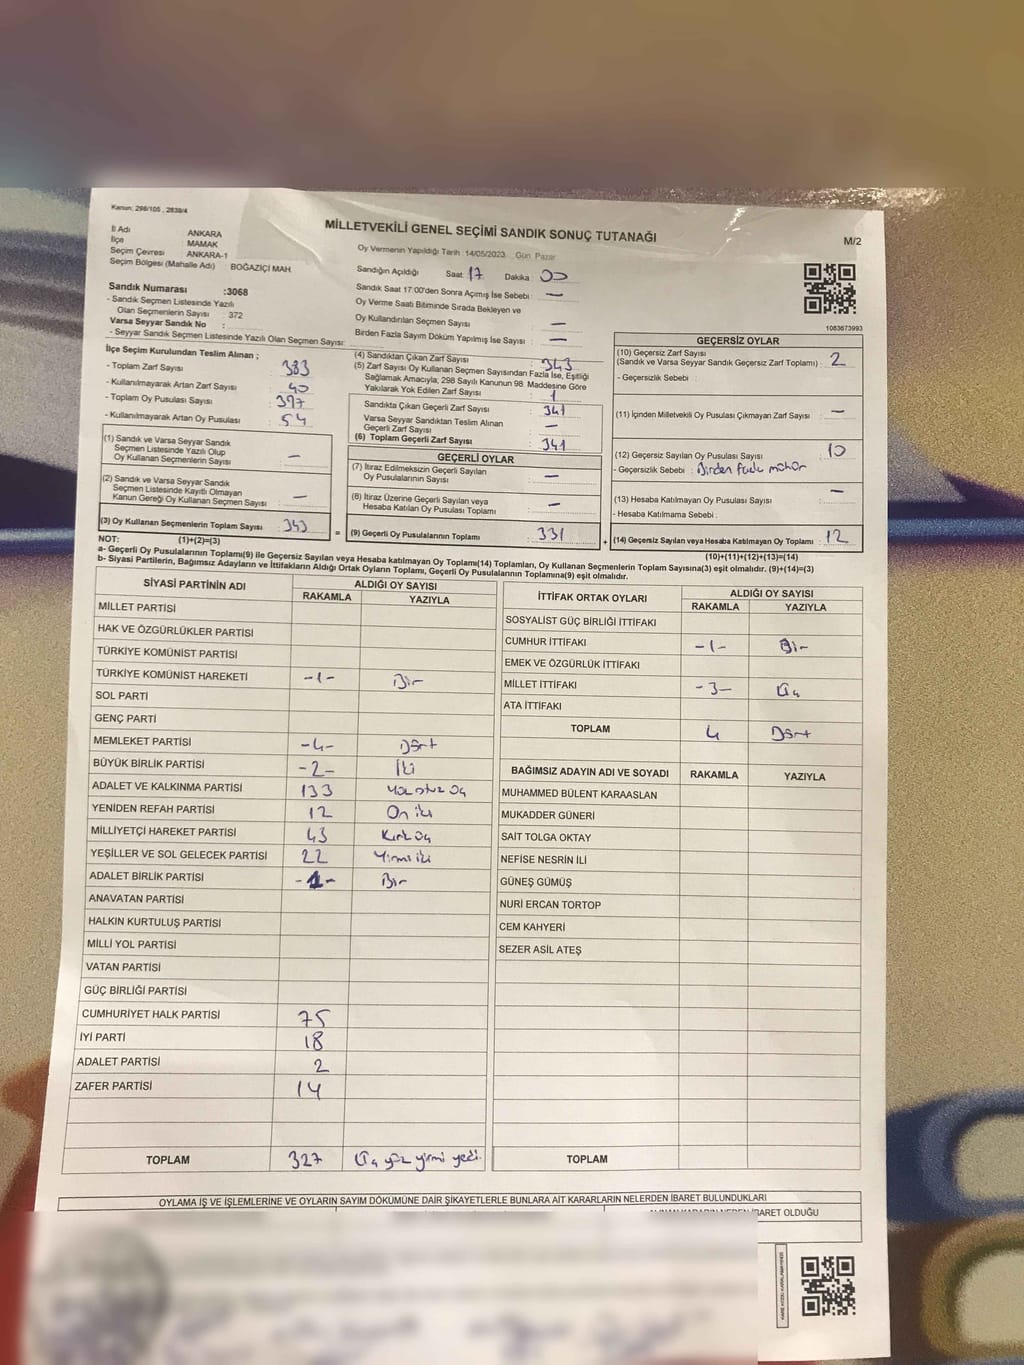 Kanun: 298/105 , 2839/4
MİLLETVEKİLİ GENEL SEÇİMİ SANDIK SONUÇ TUTANAĞI
M/2
İl Adı : ANKARA
İlçe : MAMAK
Seçim Çevresi : ANKARA-1
Seçim Bölgesi (Mahalle Adı) : BOĞAZİÇİ MAH.
Sandık Numarası :3068
- Sandık Seçmen Listesinde Yazılı
Olan Seçmenlerin Sayısı : 372
Varsa Seyyar Sandık No :
- Seyyar Sandık Seçmen Listesinde Yazılı Olan Seçmen Sayısı:
Oy Vermenin Yapıldığı Tarih: 14/05/2023 Gün: Pazar
Sandığın Açıldığı Saat: 17 Dakika: 00
Sandık Saat 17:00'den Sonra Açımış İse Sebebi : —
Oy Verme Saati Bitiminde Sırada Bekleyen ve
Oy Kullandırılan Seçmen Sayısı : —
Birden Fazla Sayım Döküm Yapılmış İse Sayısı : —
1083673993
İlçe Seçim Kurulundan Teslim Alınan ;
- Toplam Zarf Sayısı : 383
- Kullanılmayarak Artan Zarf Sayısı : 40
- Toplam Oy Pusulası Sayısı : 397
- Kullanılmayarak Artan Oy Pusulası : 54
(1) Sandık ve Varsa Seyyar Sandık
Seçmen Listesinde Yazılı Olup
Oy Kullanan Seçmenlerin Sayısı : —
(2) Sandık ve Varsa Seyyar Sandık
Seçmen Listesinde Kayıtlı Olmayan
Kanun Gereği Oy Kullanan Seçmen Sayısı : —
(3) Oy Kullanan Seçmenlerin Toplam Sayısı : 343
(4) Sandıktan Çıkan Zarf Sayısı : 343
(5) Zarf Sayısı Oy Kullanan Seçmen Sayısından Fazla İse, Eşitliği
Sağlamak Amacıyla, 298 Sayılı Kanunun 98. Maddesine Göre
Yakılarak Yok Edilen Zarf Sayısı : 1
Sandıkta Çıkan Geçerli Zarf Sayısı : 341
Varsa Seyyar Sandıktan Teslim Alınan
Geçerli Zarf Sayısı : —
(6) Toplam Geçerli Zarf Sayısı : 341
GEÇERLİ OYLAR
(7) İtiraz Edilmeksizin Geçerli Sayılan
Oy Pusulalarının Sayısı : —
(8) İtiraz Üzerine Geçerli Sayılan veya
Hesaba Katılan Oy Pusulası Toplamı : —
= (9) Geçerli Oy Pusulalarının Toplamı : 331
GEÇERSİZ OYLAR
(10) Geçersiz Zarf Sayısı
(Sandık ve Varsa Seyyar Sandık Geçersiz Zarf Toplamı) : 2
- Geçersizlik Sebebi :
(11) İçinden Milletvekili Oy Pusulası Çıkmayan Zarf Sayısı : —
(12) Geçersiz Sayılan Oy Pusulası Sayısı : 10
- Geçersizlik Sebebi : Birden fazla mühür
(13) Hesaba Katılmayan Oy Pusulası Sayısı : —
- Hesaba Katılmama Sebebi :
+ (14) Geçersiz Sayılan veya Hesaba Katılmayan Oy Toplamı : 12
NOT: (1)+(2)=(3)
(10)+(11)+(12)+(13)=(14)
a- Geçerli Oy Pusulalarının Toplamı(9) ile Geçersiz Sayılan veya Hesaba katılmayan Oy Toplamı(14) Toplamları, Oy Kullanan Seçmenlerin Toplam Sayısına(3) eşit olmalıdır. (9)+(14)=(3)
b- Siyasi Partilerin, Bağımsız Adayların ve İttifakların Aldığı Ortak Oyların Toplamı, Geçerli Oy Pusulalarının Toplamına(9) eşit olmalıdır.
SİYASİ PARTİNİN ADI ALDIĞI OY SAYISI
RAKAMLA YAZIYLA
MİLLET PARTİSİ
HAK VE ÖZGÜRLÜKLER PARTİSİ
TÜRKİYE KOMÜNİST PARTİSİ
TÜRKİYE KOMÜNİST HAREKETİ -1- Bir
SOL PARTİ
GENÇ PARTİ
MEMLEKET PARTİSİ -4- Dört
BÜYÜK BİRLİK PARTİSİ -2- İki
ADALET VE KALKINMA PARTİSİ 133
YENİDEN REFAH PARTİSİ 12 On iki
MİLLİYETÇİ HAREKET PARTİSİ 43 Kırk üç
YEŞİLLER VE SOL GELECEK PARTİSİ 22 Yirmi iki
ADALET BİRLİK PARTİSİ -1- Bir
ANAVATAN PARTİSİ
HALKIN KURTULUŞ PARTİSİ
MİLLİ YOL PARTİSİ
VATAN PARTİSİ
GÜÇ BİRLİĞİ PARTİSİ
CUMHURİYET HALK PARTİSİ 75
İYİ PARTİ 18
ADALET PARTİSİ 2
ZAFER PARTİSİ 14
TOPLAM 327 Üç yüz yirmi yedi.
İTTİFAK ORTAK OYLARI ALDIĞI OY SAYISI
RAKAMLA YAZIYLA
SOSYALİST GÜÇ BİRLİĞİ İTTİFAKI
CUMHUR İTTİFAKI -1- Bir
EMEK VE ÖZGÜRLÜK İTTİFAKI
MİLLET İTTİFAKI -3- Üç
ATA İTTİFAKI
TOPLAM 4 Dört
BAĞIMSIZ ADAYIN ADI VE SOYADI RAKAMLA YAZIYLA
MUHAMMED BÜLENT KARAASLAN
MUKADDER GÜNERİ
SAİT TOLGA OKTAY
NEFİSE NESRİN İLİ
GÜNEŞ GÜMÜŞ
NURİ ERCAN TORTOP
CEM KAHYERİ
SEZER ASİL ATEŞ
TOPLAM
OYLAMA İŞ VE İŞLEMLERİNE VE OYLARIN SAYIM DÖKÜMÜNE DAİR ŞİKAYETLERLE BUNLARA AİT KARARLARIN NELERDEN İBARET BULUNDUKLARI
OLDUĞU